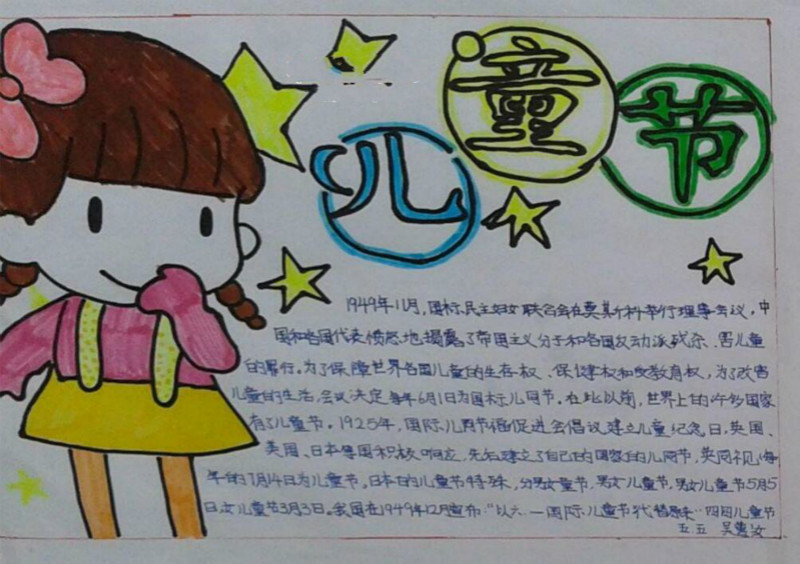 儿童节
1949年11月,国际民主妇女联合会在莫斯科举行理事会议,中
国和各国代表愤怒地揭露了帝国主义分子和各国反动派残杀、害儿童
的罪行。为了保障世界各国儿童的生存权、保健权和受教育权,为了改善
儿童的生活,会议决定每年6月1日为国际儿同节。在此以前,世界上的许多国家
有了儿童节。1925年,国际儿同节倡促进会倡议建立儿童纪念日,英国、
美国、日本等国积极响应,先后建立了自己的国家的儿同节,英同规每
年的7月14日为儿童节。日本的儿童节特殊,分男女童节,男女儿童节,男女儿童节5月5
日,女儿童节3月3日。我国在1949年12月宣布:"以六.一国际儿童节代替原来"四四儿童节
五.五 吴